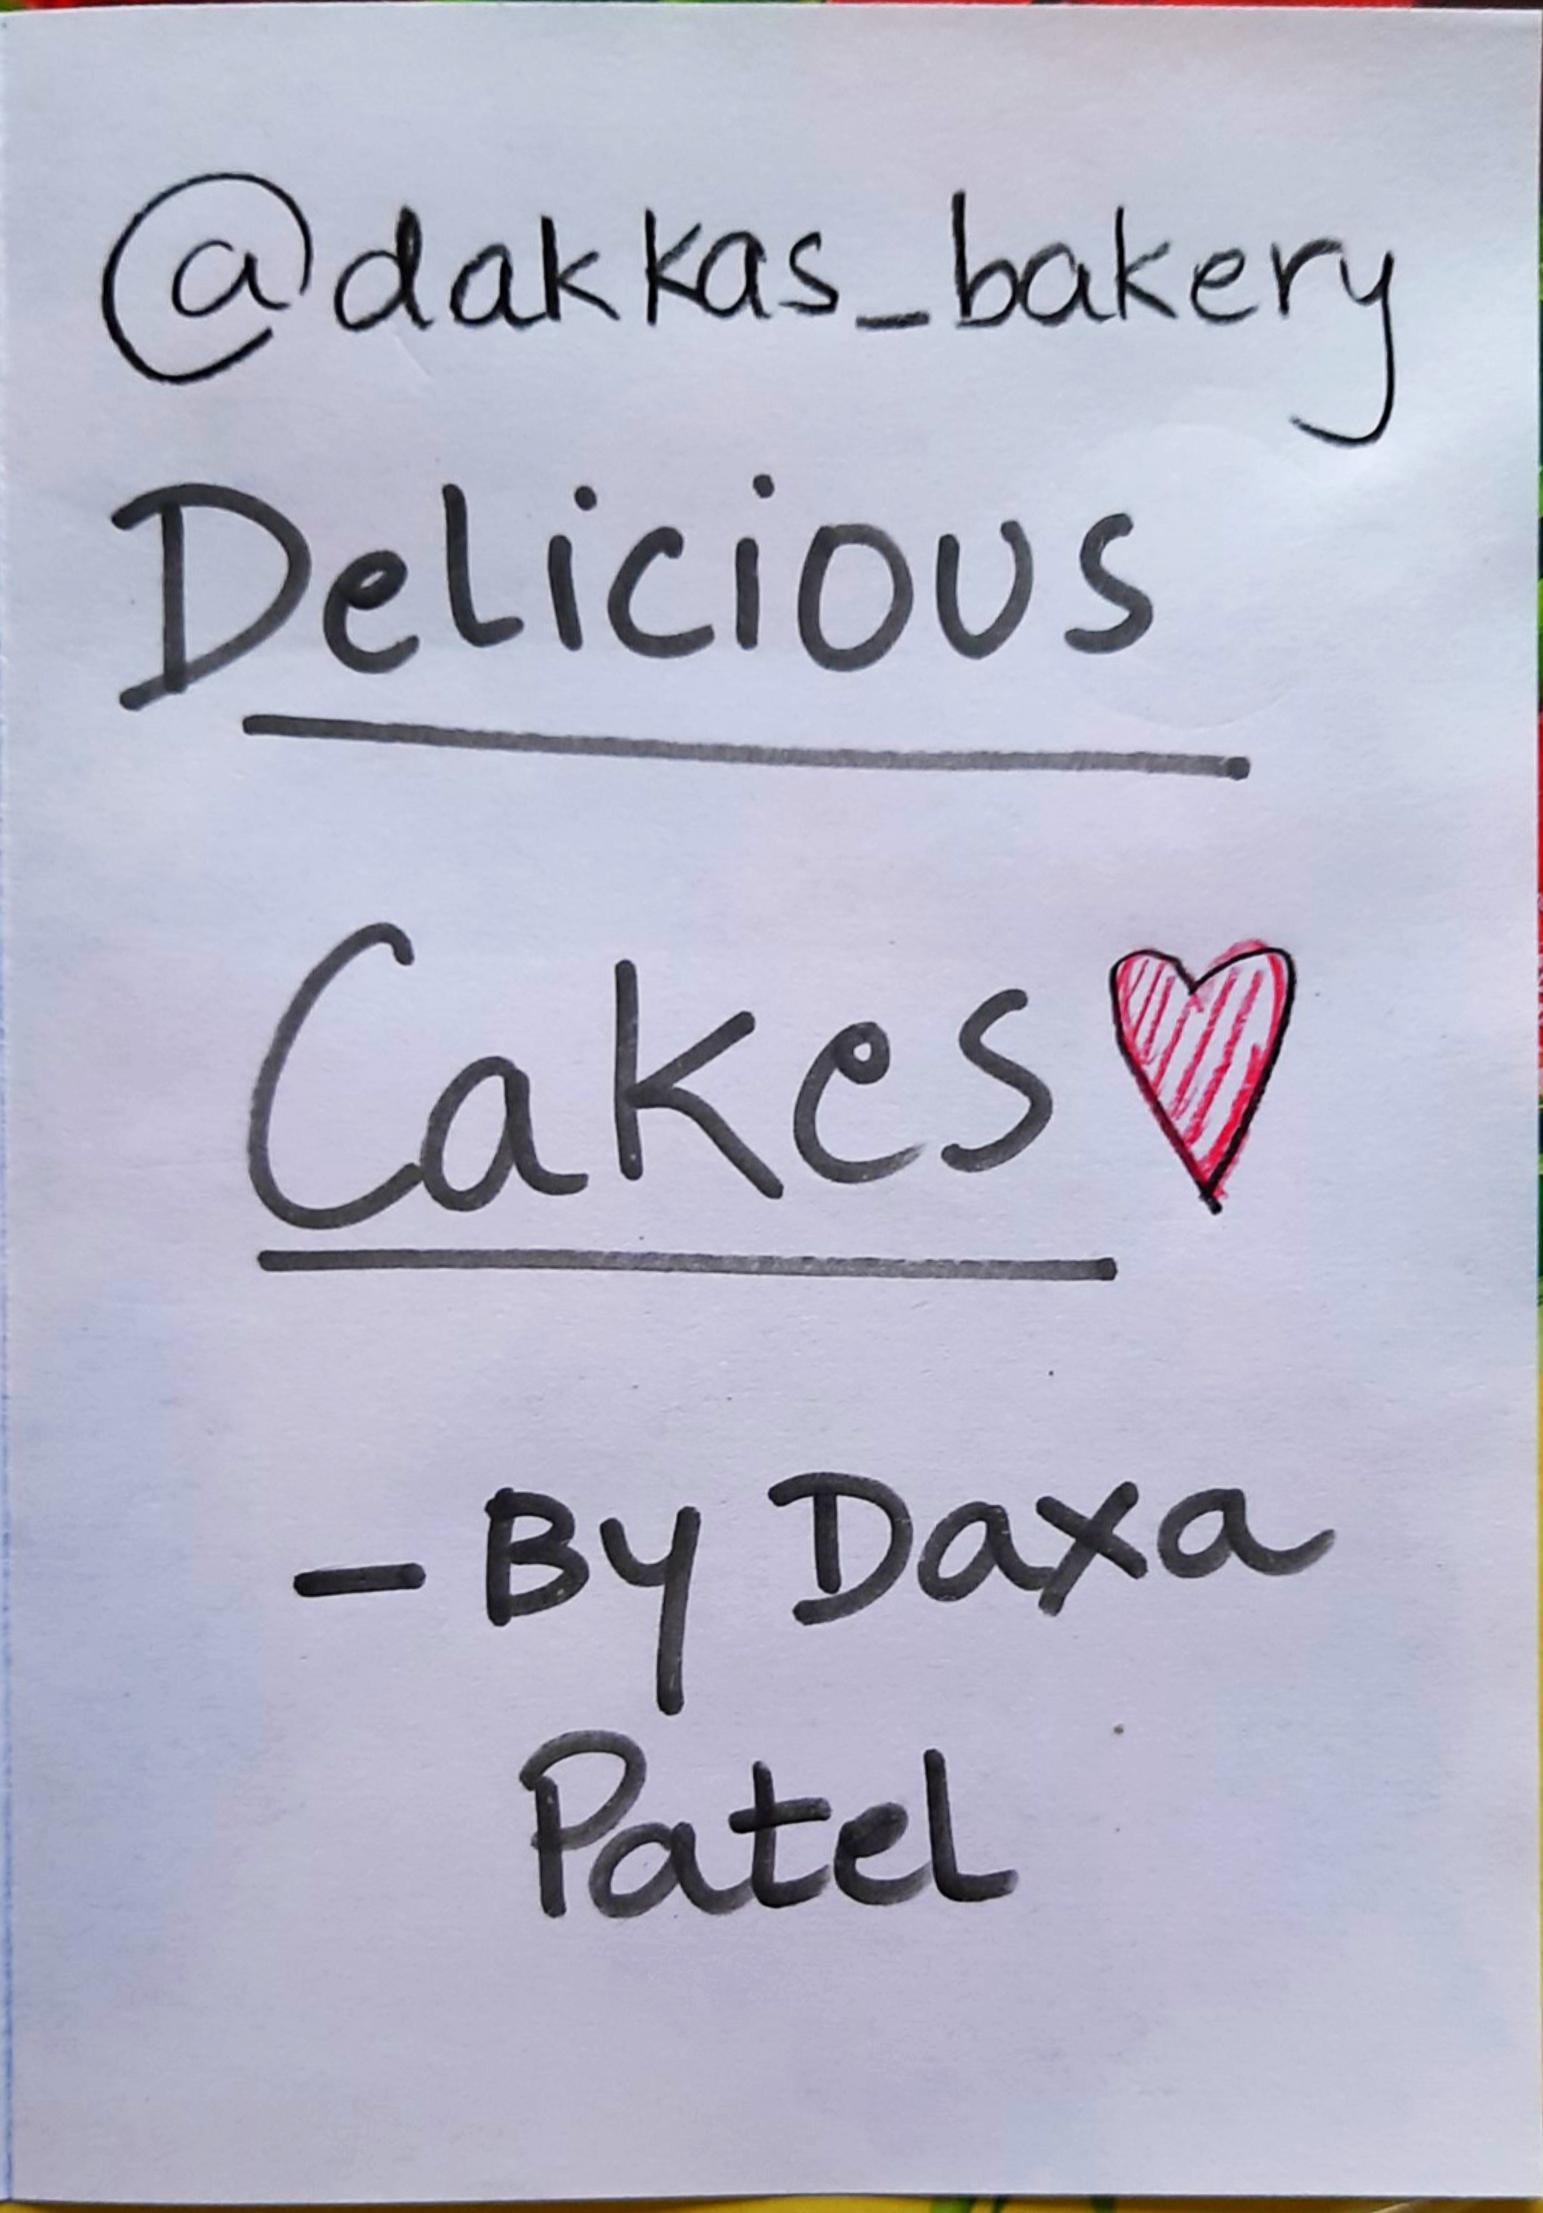 @dakkas_bakery
Delicious
Cakes
- By Daxa
Patel